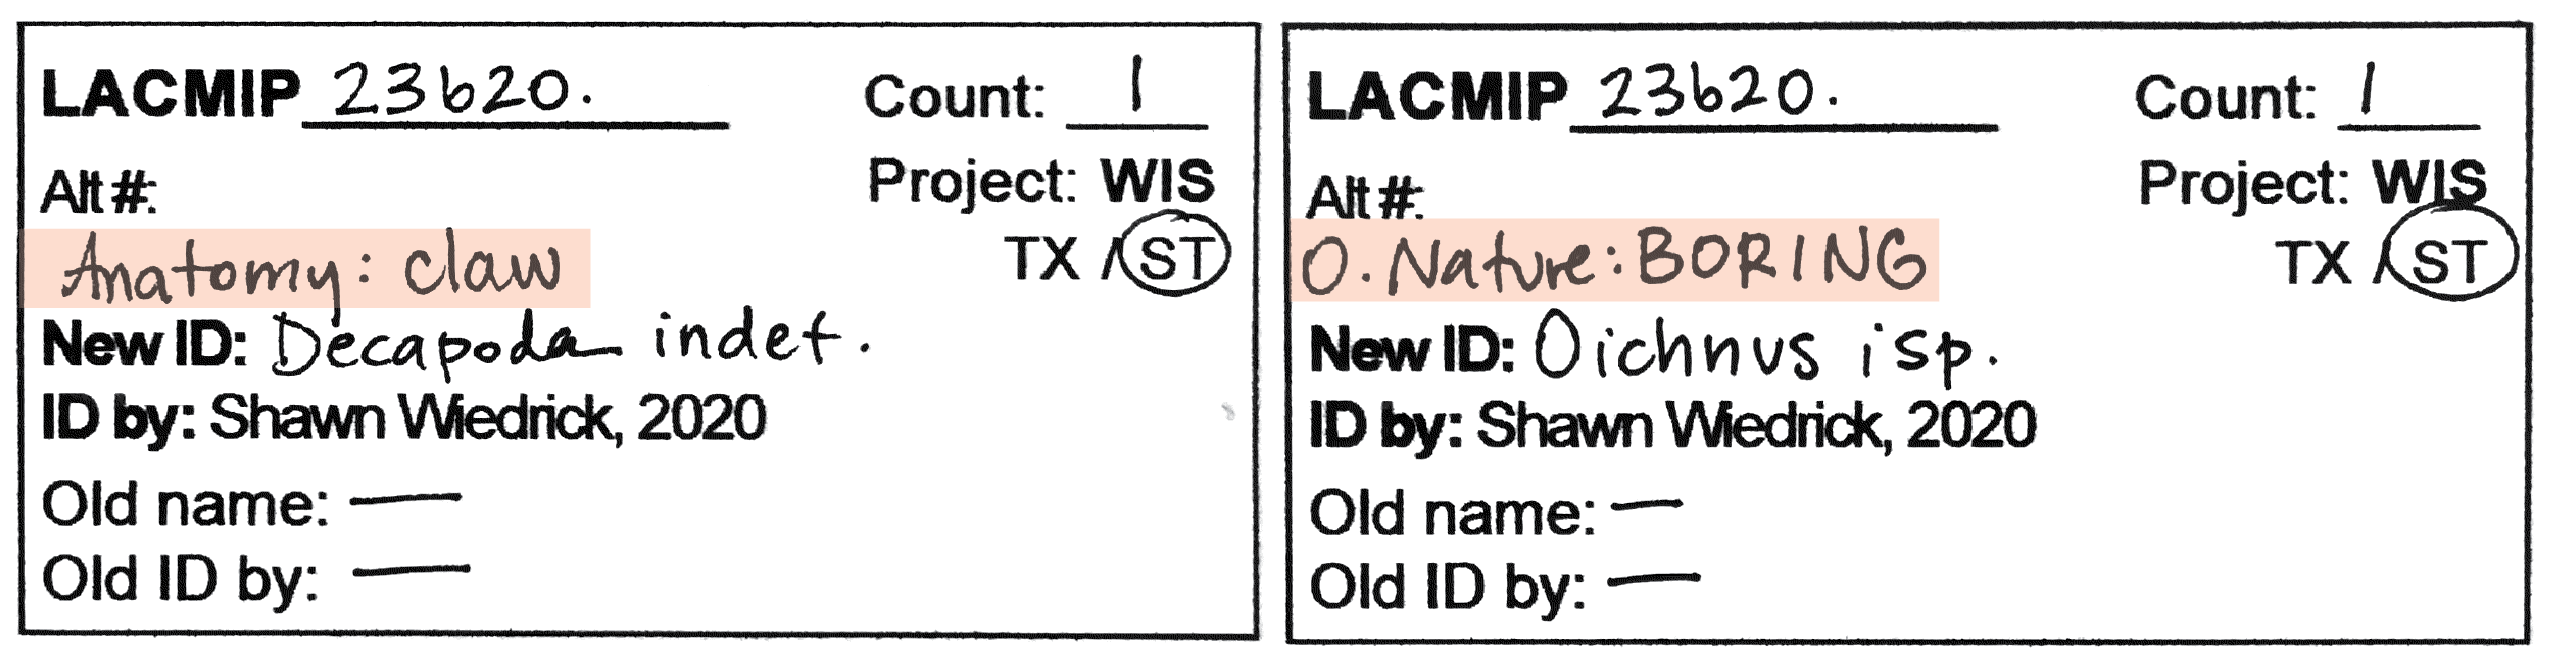 LACMIP 23620. Count: 1
Alt #:
Project: WIS
TX / ST
Anatomy: claw
New ID: Decapoda indet.
ID by: Shawn Wiedrick, 2020
Old name: —
Old ID by: —
LACMIP 23620. Count: 1
Alt #:
Project: WIS
TX / ST
O. Nature: BORING
New ID: Oichnus isp.
ID by: Shawn Wiedrick, 2020
Old name: —
Old ID by: —